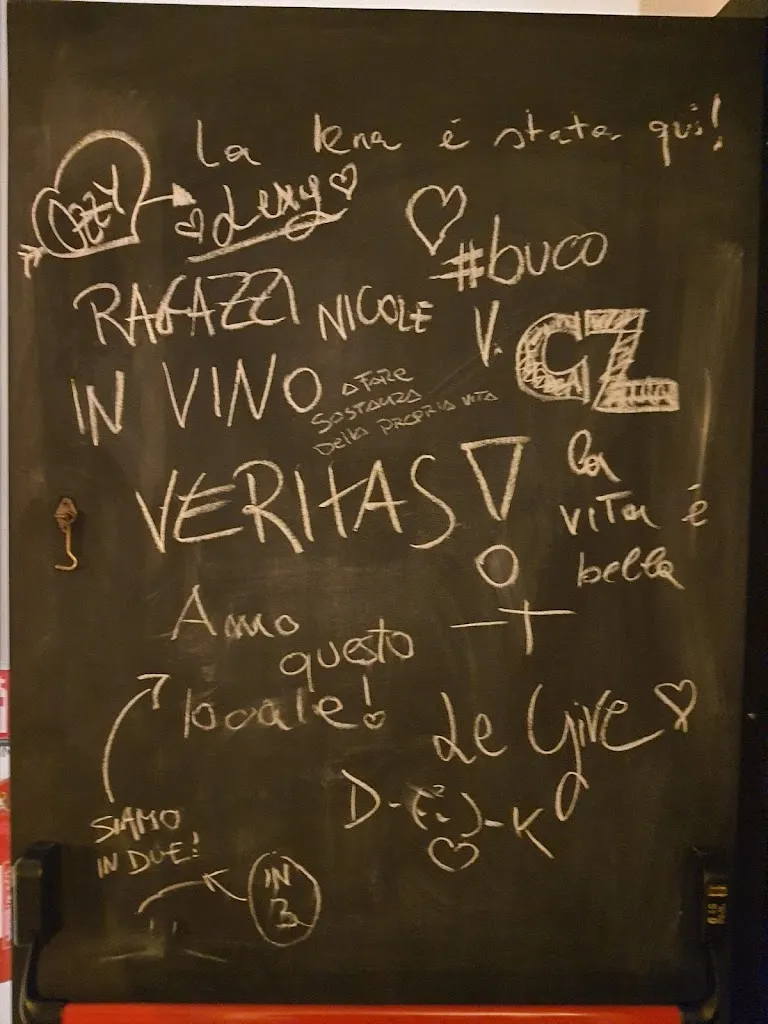 La Iena è stata qui!
OZZY
Lexy
#buco
RAGAZZI NICOLE
V. CZ
IN VINO
A FARE
SOSTANZA
DELLA PROPRIA VITA
VERITAS
la
vita è
bella
Amo
questo
locale!
Le Give
D-( )-K
SIAMO
IN DUE!
IN
3